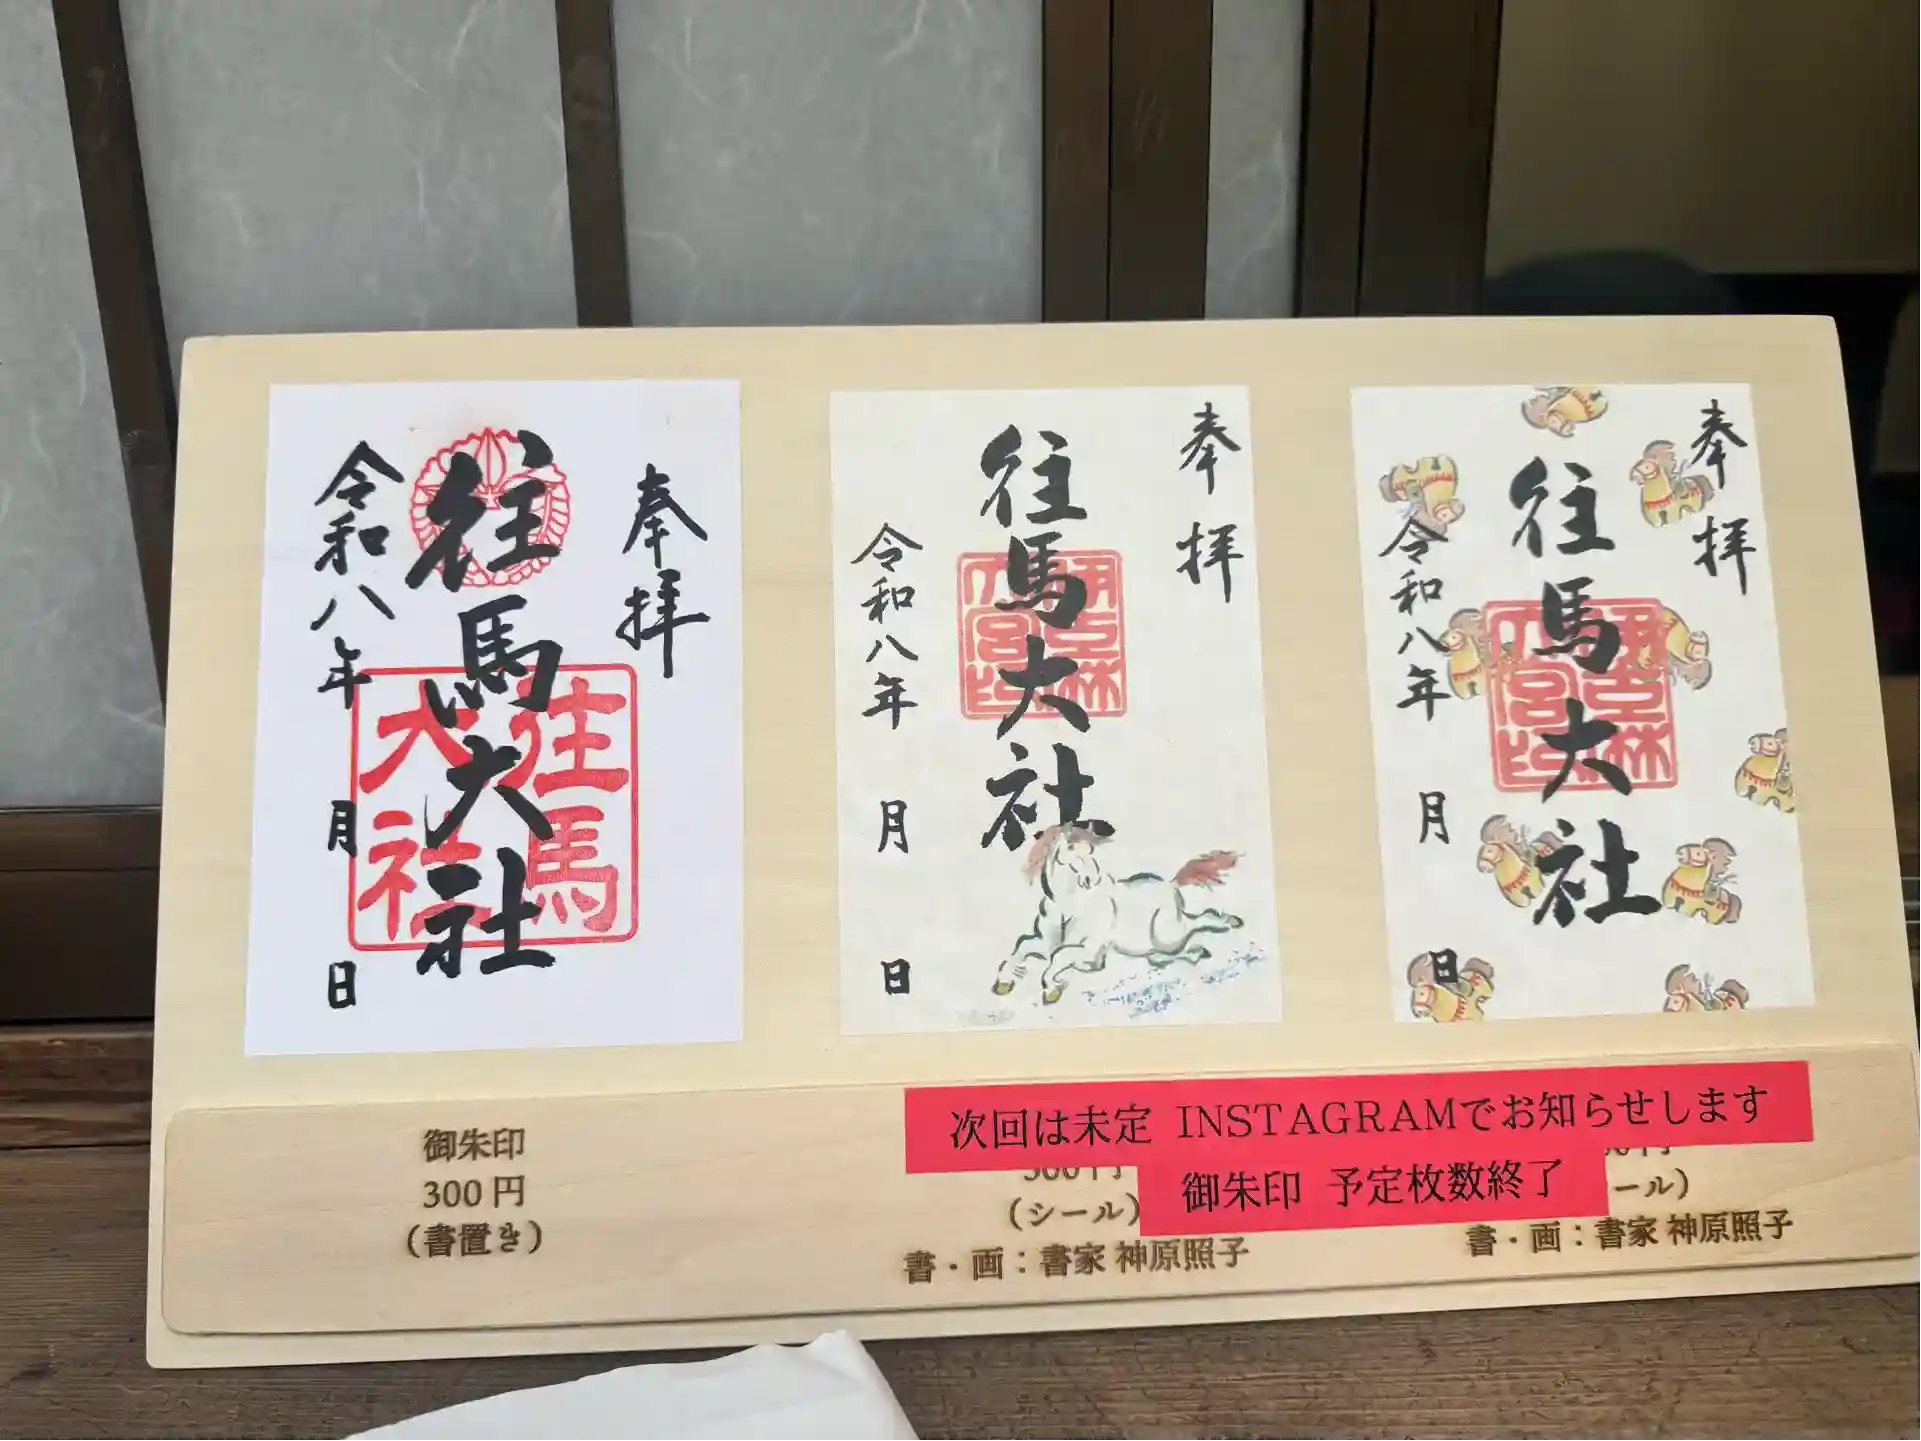 奉拝
往馬大社
令和八年 月 日
往馬
大社
奉拝
往馬大社
令和八年 月 日
奉拝
往馬大社
令和八年 月 日
御朱印
300円
(書置き)
次回は未定 INSTAGRAMでお知らせします
御朱印 予定枚数終了
(シール)
書・画:書家 神原照子
ール)
書・画:書家 神原照子